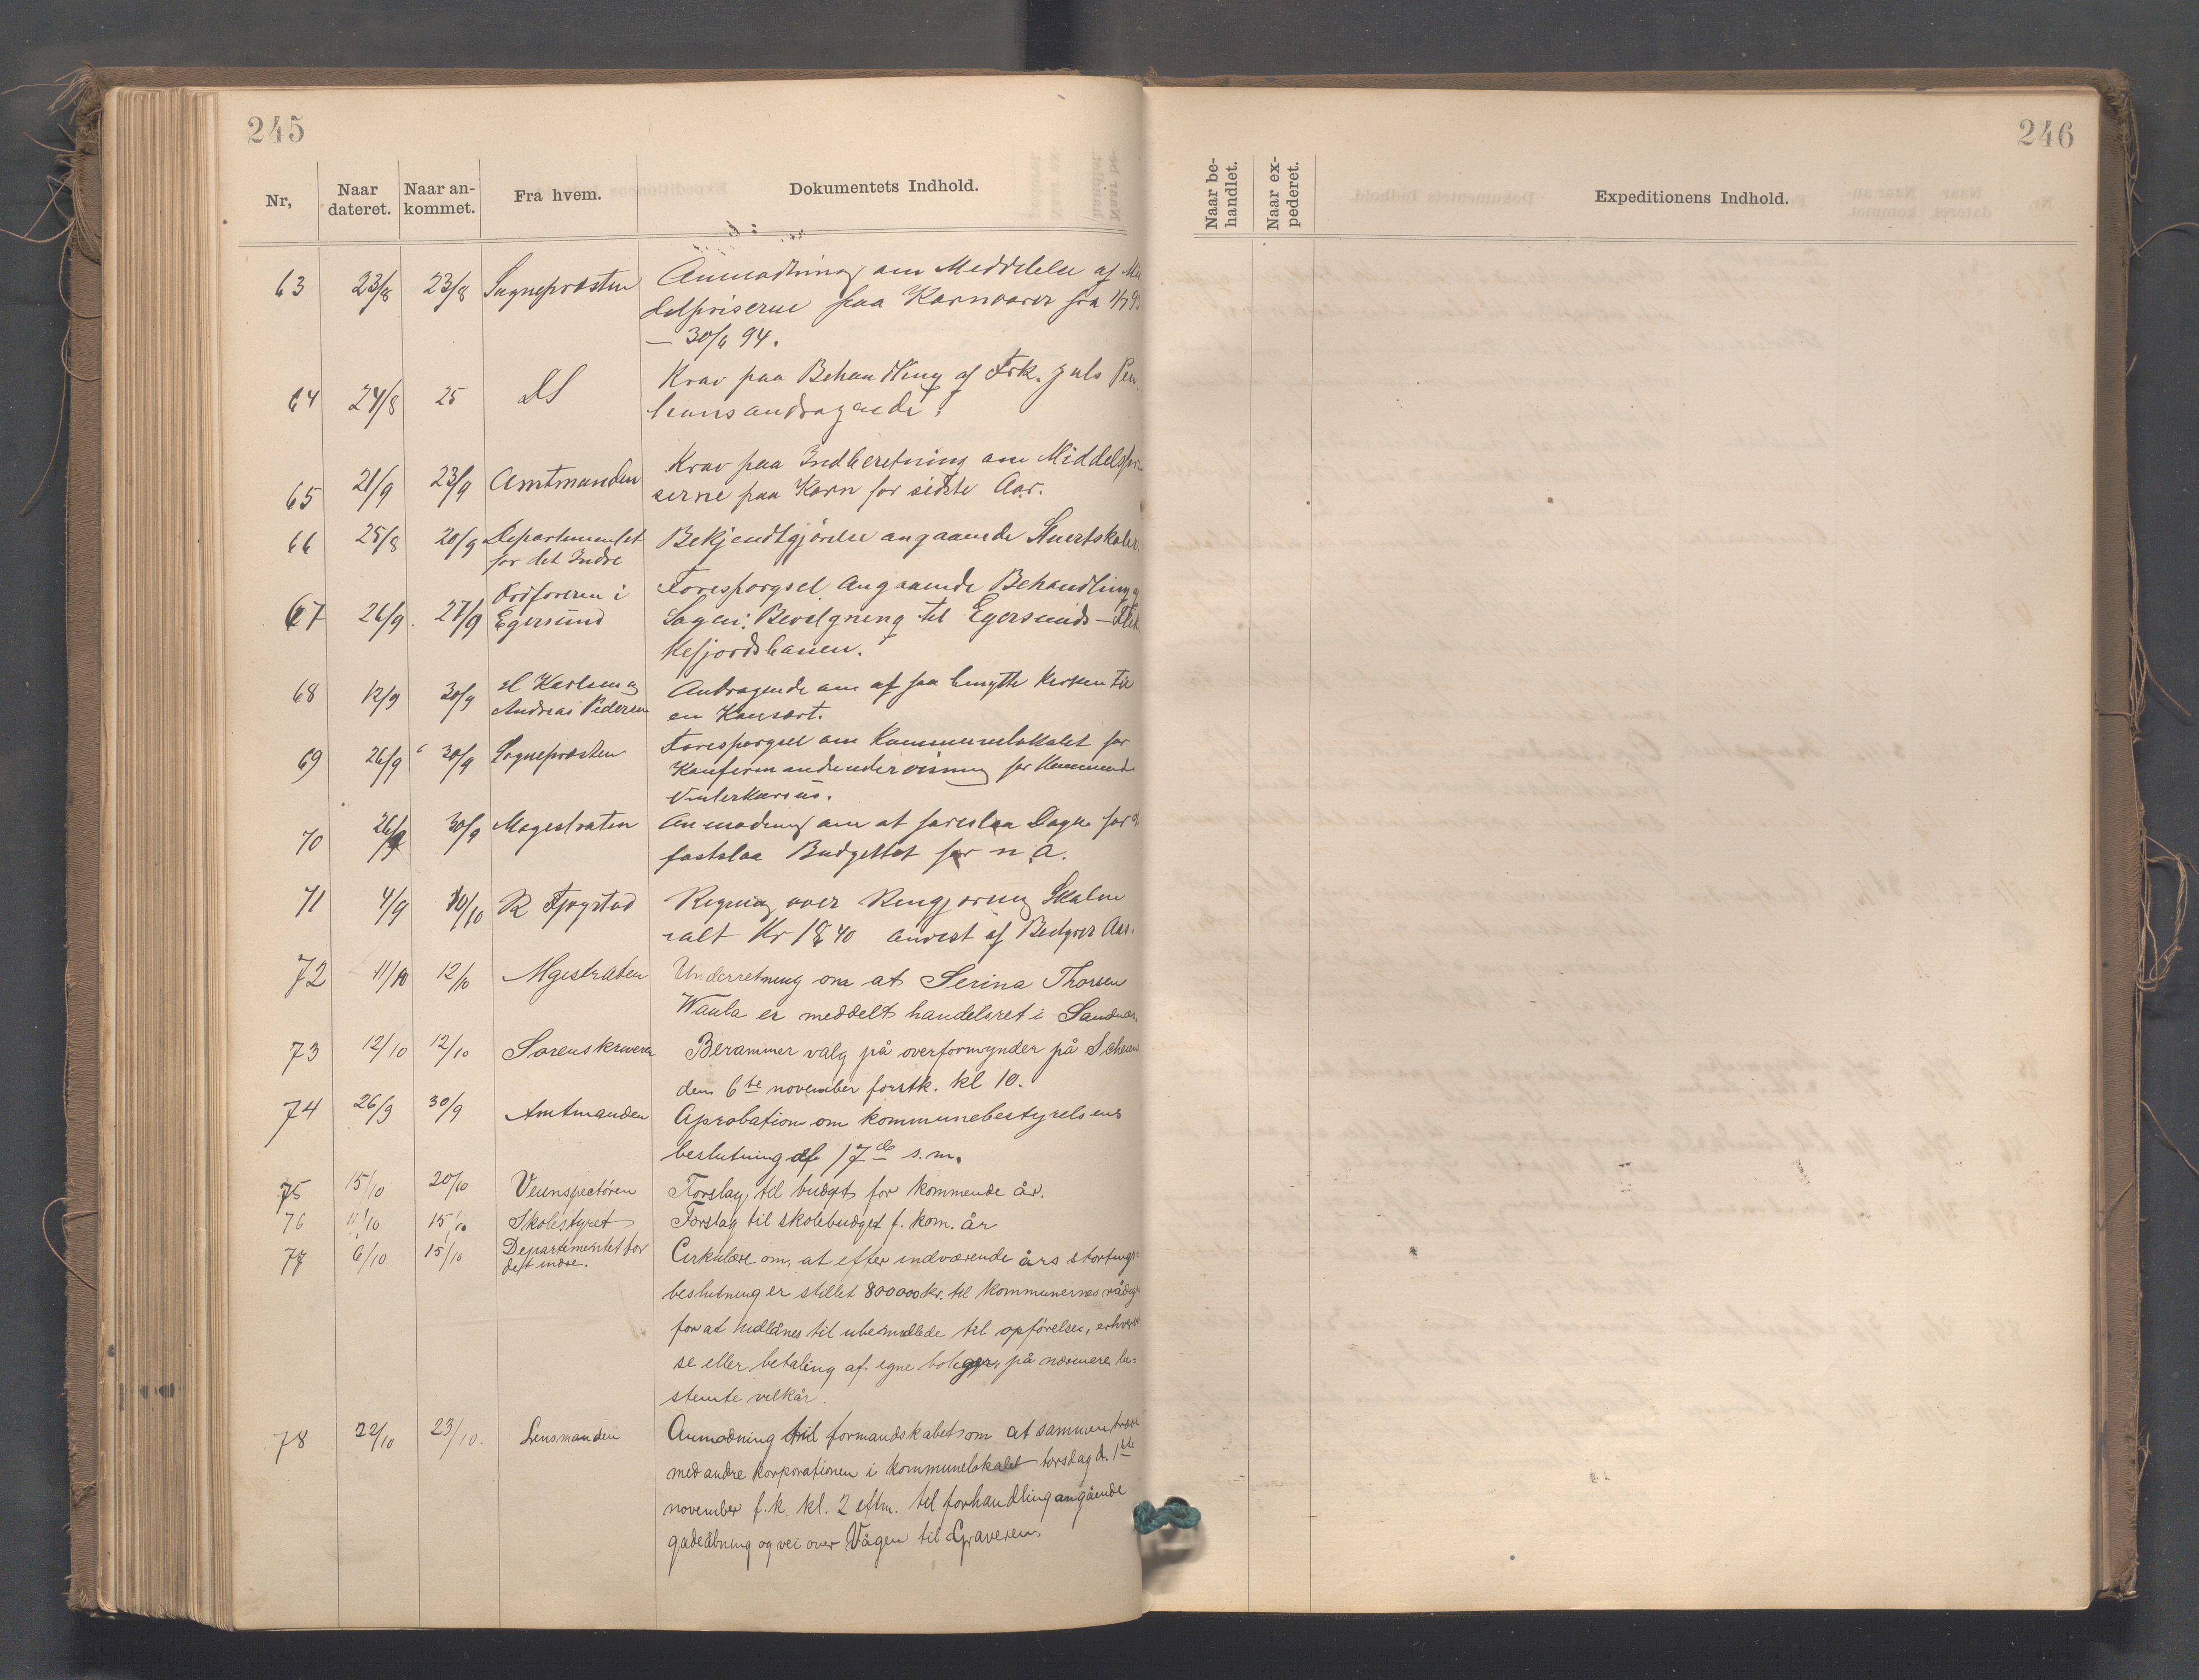 245
Nr, Naar dateret. Naar an-kommet. Fra hvem. Dokumentets Indhold.
63 23/8 23/8 Sognepræsten Anmodning om Meddelelse af Mid
delpriserne paa Kornvarer fra 1/7 93
— 30/6 94.
64 24/8 25 DS Krav paa Behandling af Frk. Juls Pen
sionsandragende.
65 21/9 23/9 Amtmanden Krav paa Indberetning om Middelspri
serne paa Korn for sidste Aar.
66 25/8 20/9 Departementet for det Indre Bekjendtgjörelse angaaende
67 26/9. 27/9 Ordføreren i Egersund Forespørgsel Angaaende Behandling af
Sagen: Bevilgning til Egersunds—Flek
kefjordsbanen.
68 12/9 30/9 Karlsen og Andreas Pedersen Andragende om at faa benytte Kirken til
en Konsert.
69 26/9 30/9 Sognepræsten Forespørgsel om Kommunelokalet for
Konfirmandundervisning for kommende
Vinterkursus.
70 26/9 30/9 Magestraten Anmodning om at foreslaa Dage for at
fastslaa Budgettet for n. A.
71 4/9 10/10 R Fjogstad Regning over Rengjøring Skolen
ialt Kr 18,40 anvist af
72 11/10 12/10 Mgistraten Underretning om at Serina Thorsen
Waula er meddelt handelsret i Sandnæs
73 12/10 12/10 Sorenskriveren Berammer valg på overformynder på
den 6te november førstk. kl 10.
74 26/9 30/9 Amtmanden Aprobation om kommunebestyrelsens
beslutning af 17de s.m.
75 15/10 20/10 Veiinspectören Forslag til budget for kommende år.
76 11/10 15/10 Skolestyret Forslag til skolebudget f. kom. år
77 6/10 15/10 Departementet for det indre. Cirkulære om, at efter indværende års stortings=
beslutning er stillet 800000 kr. til kommunernes rådig
for at udlånes til ubemidlede til opförelse, erhvervel
se eller betaling af egne boliger, på nærmere be=
stemte vilkår.
78 22/10 23/10. Lensmanden Anmodning til formandskabet om at sammentræde
med andre korporationen i kommunelokalet torsdag d. 1ste
november f.k. kl. 2 eftm. til forhandling angående
gadeåbning og vei over Vågen til Graveren.
246
Naar be-handlet. Naar ex-pederet. Expeditionens Indhold.